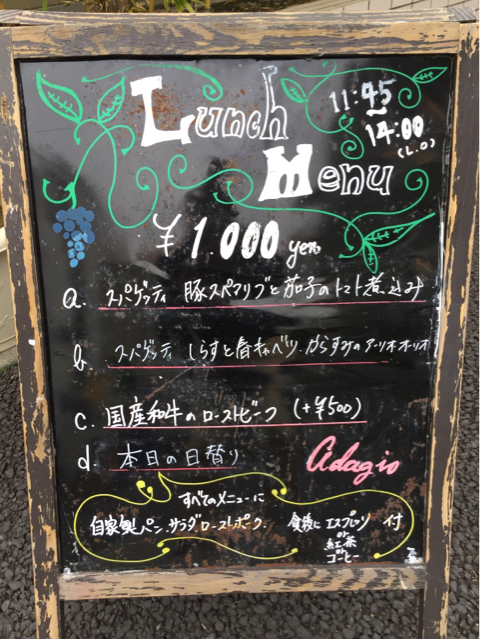 Lunch
Menu
11:45
~
14:00
(L.O)
¥1.000 yen
a. スパゲッティ 豚スペアリブと茄子のトマト煮込み
b. スパゲッティ しらすと春キャベツ、からすみのアーリオオーリオ
c. 国産和牛のローストビーフ (+¥500)
d. 本日の日替り
Adagio
すべてのメニューに
自家製パン、サラダローストポーク、
食後に エスプレッソ
or
紅茶
or
コーヒー
付